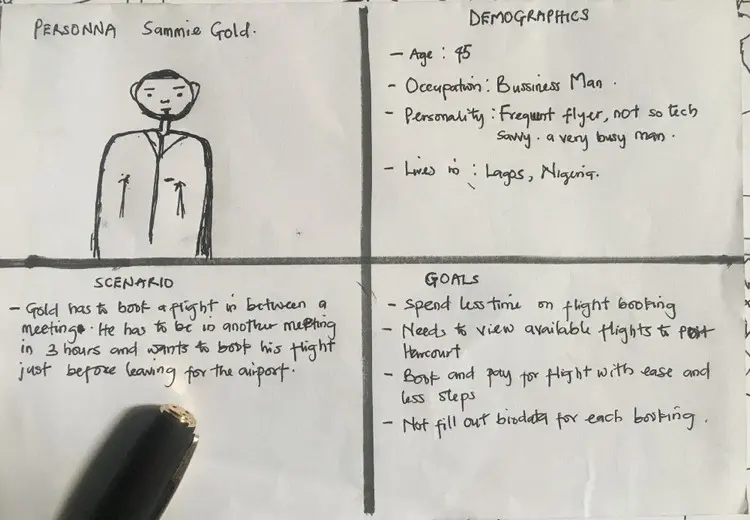 PERSONNA Sammie Gold.
DEMOGRAPHICS
- Age : 45
- Occupation : Bussiness Man .
- Personality : Frequent flyer, not so tech
savvy . a very busy man .
- Lives in : Lagos, Nigeria.
SCENARIO
- Gold has to book a flight in between a
meeting. He has to be in another meeting
in 3 hours and wants to book his flight
just before leaving for the airport.
GOALS
- Spend less time on flight booking
- Needs to view available flights to Port
Harcourt
- Book and pay for flight with ease and
less steps
- Not fill out biodata for each booking .